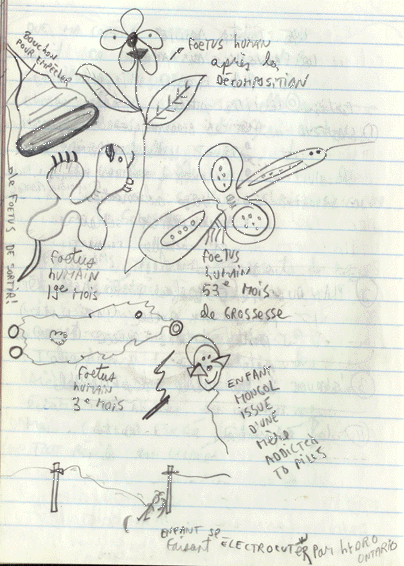 BOUCHON
POUR EMPÊCHER
LE FOETUS DE SORTIR!
FOETUS HUMAN
après la
DÉCOMPOSITION
foetus
HUMAIN
19e MOIS
foetus
humain
53e MOIS
de GROSSESSE
foetus
HUMAIN
3e MOIS
ENFANT
MONGOL
ISSUE
D'UNE
MÈRE
ADDICTED
TO PILLS
ENFANT SE
faisant ÉLECTROCUTER PAR HYDRO
ONTARIO